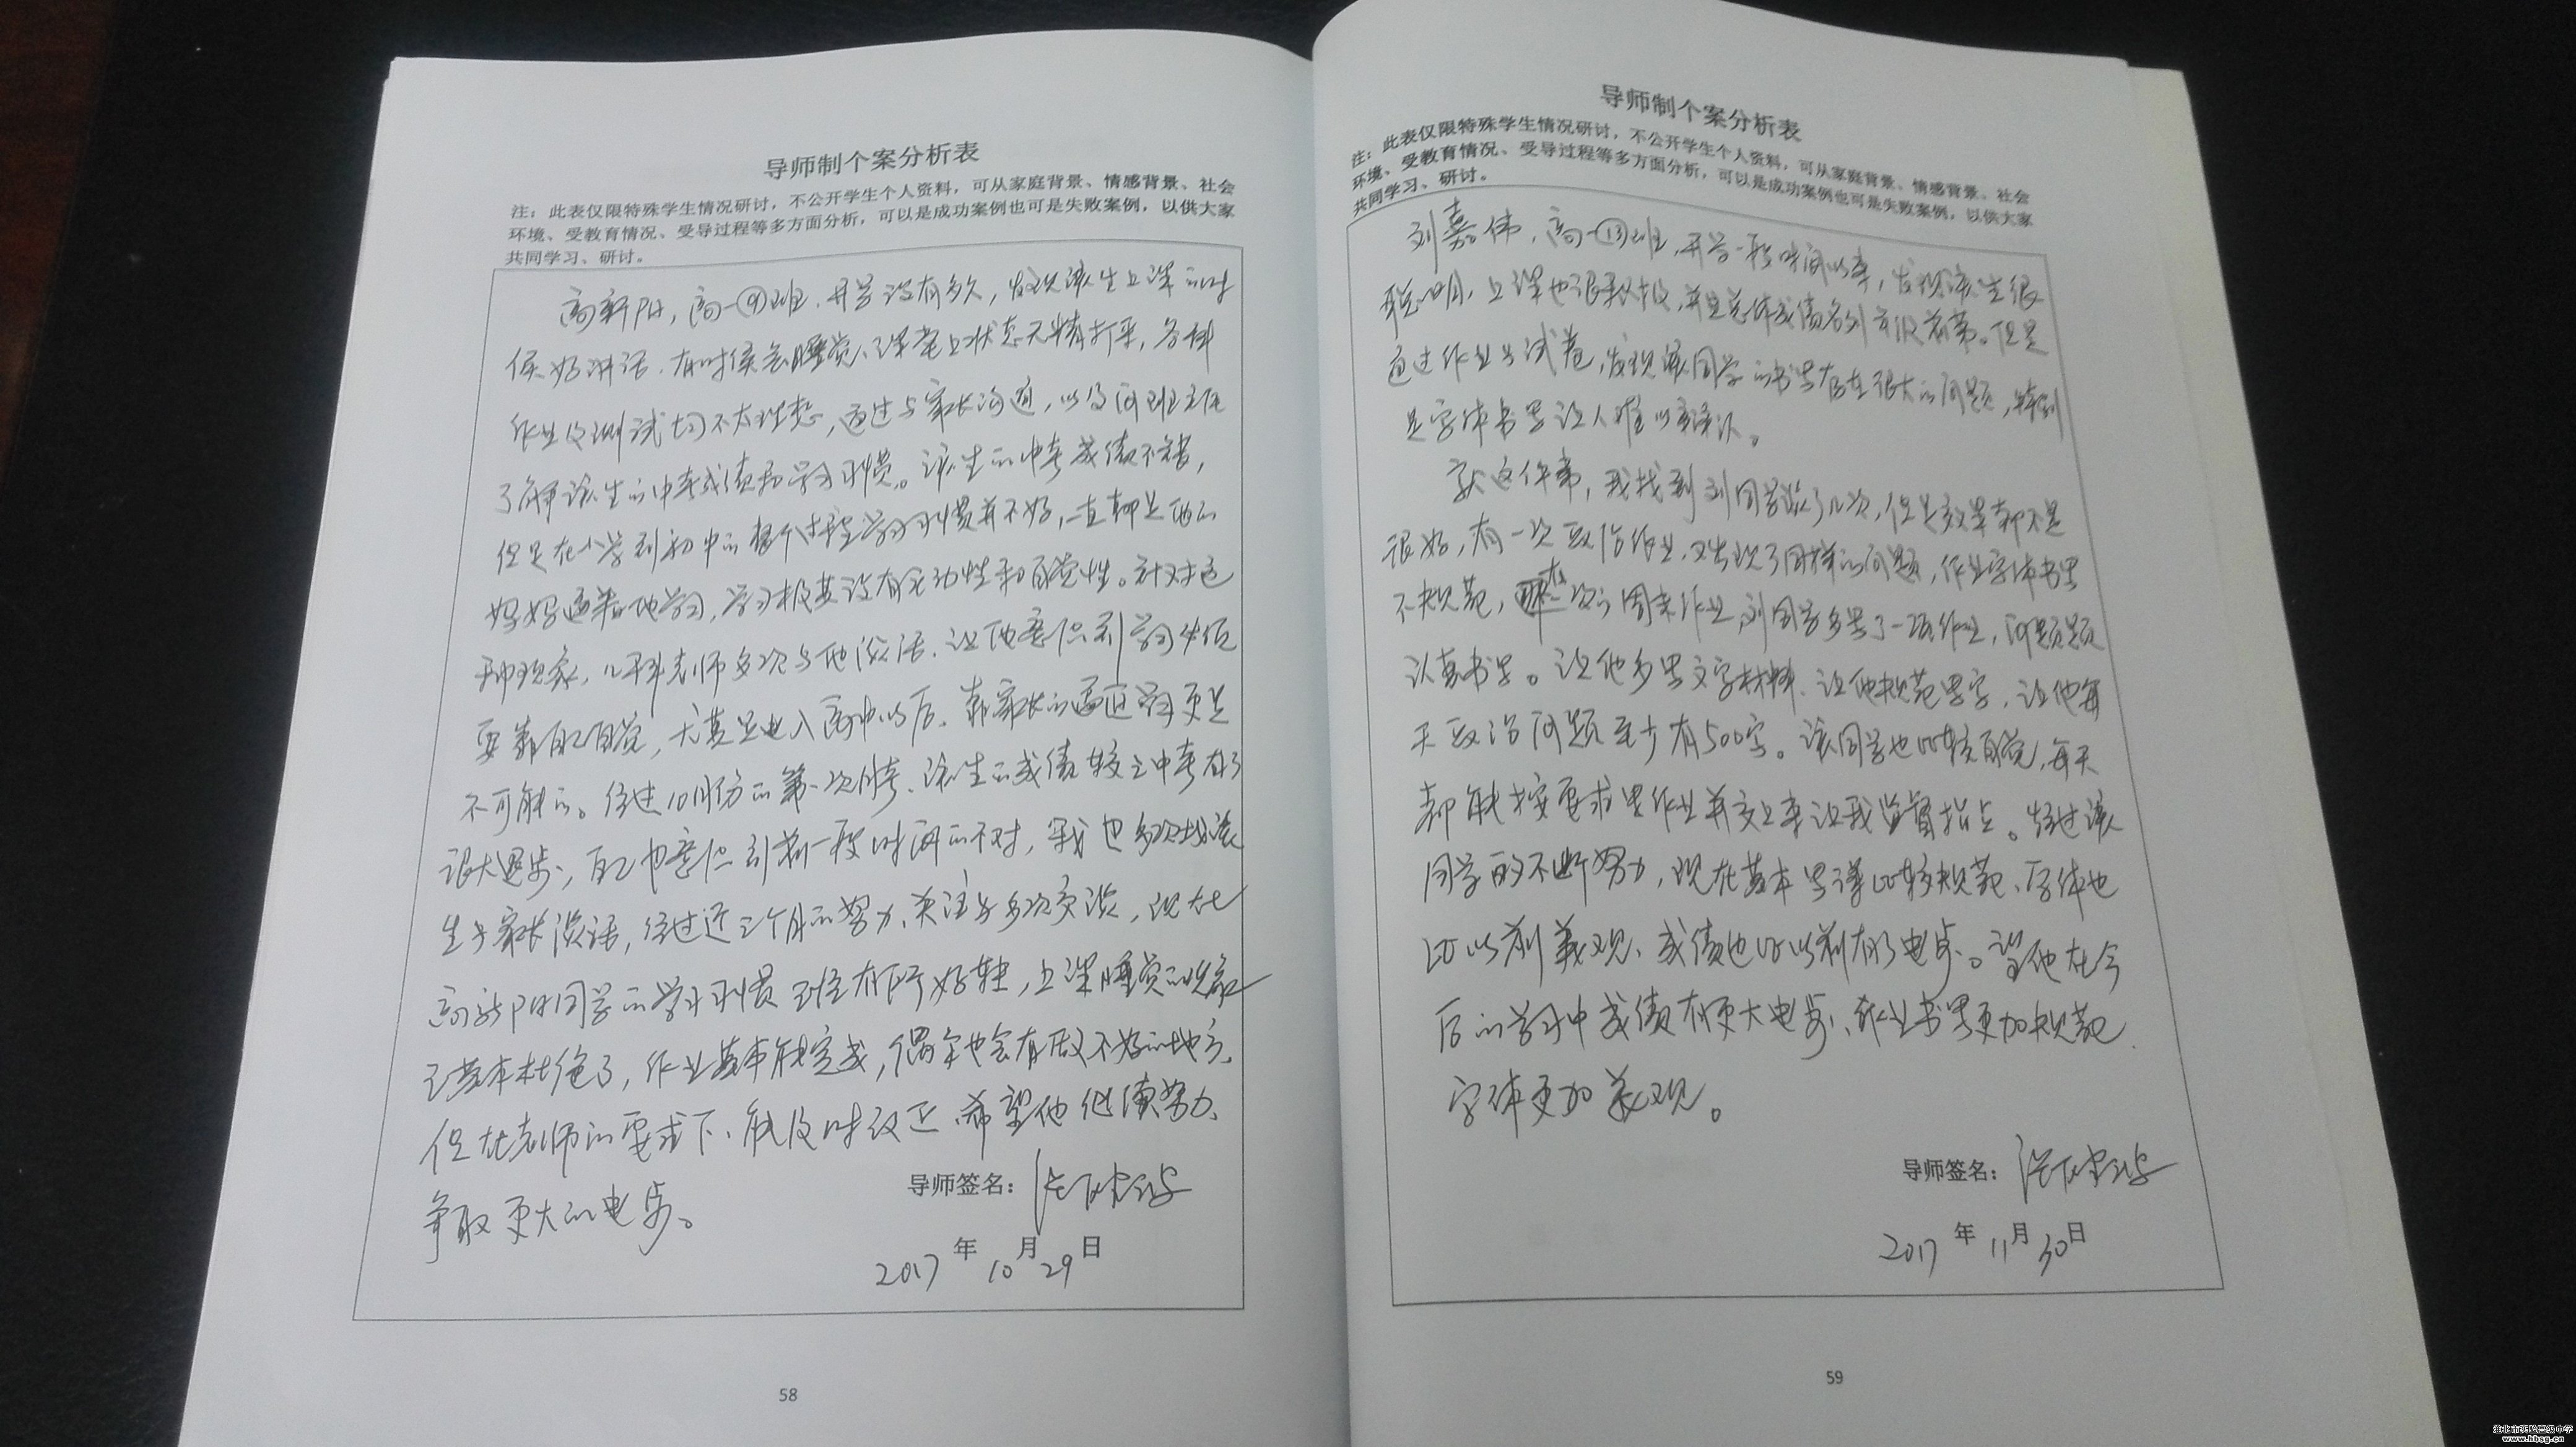 导师制个案分析表
注：此表仅限特殊学生情况研讨，不公开学生个人资料，可从家庭背景、情感背景、社会
环境、受教育情况、受导过程等多方面分析，可以是成功案例也可是失败案例，以供大家
共同学习、研讨。
高新阳，高一⑨班，开学没有多久，发现该生上课的时
候好讲话，有时候会睡觉、课堂上状态无精打采，各种
作业及测试均不太理想，通过与家长沟通，以及问班主任
了解该生的中考成绩和学习习惯。该生的中考成绩不错，
但是在小学到初中的整个过程学习习惯并不好，一直都是他的
妈妈逼着他学习，学习极其没有主动性和自觉性。针对这
种现象，几科老师多次与他谈话，让他意识到学习
要靠自己自觉，尤其是进入高中以后，靠家长的逼迫学习更是
不可能的。经过10月份的第一次月考、该生的成绩较之中考有了
很大退步，自己也意识到前一段时间的不对，我也多次找该
生与家长谈话，经过近三个月的努力、关注与多次交谈，现在
高新阳同学的学习习惯已经有所好转，上课睡觉的现象
已基本杜绝了，作业基本能完成，偶尔也会有做不好的地方，
但在老师的要求下、能及时改正，希望他继续努力、
争取更大的进步。
导师签名：
2017年10月29日
58
导师制个案分析表
注：此表仅限特殊学生情况研讨，不公开学生个人资料，可从家庭背景、情感背景、社会
环境、受教育情况、受导过程等多方面分析，可以是成功案例也可是失败案例，以供大家
共同学习、研讨。
刘嘉伟，高一⑬班，开学一段时间以来，发现该生很
聪明，上课也很积极，并且总体成绩名列年级前茅。但是
通过作业与试卷，发现该同学的书写存在很大的问题，特别
是字体书写让人难以辨认。
就这件事，我找到刘同学谈了几次，但是效果都不是
很好，有一次政治作业，又出现了同样的问题，作业字体书写
不规范，本次的周末作业，刘同学多写了一项作业，问题题
认真书写。让他多写文字材料、让他规范写字，让他每
天政治问题至少有500字。该同学也比较自觉，每天
都能按要求写作业并交上来让我监督指点。经过该
同学的不断努力，现在基本书写比较规范、字体也
比以前美观、成绩也比以前有了进步。望他在今
后的学习中成绩有更大进步、作业书写更加规范
字体更加美观。
导师签名：
2017年11月30日
59
淮北市实验高级中学
www.hbsg.cn